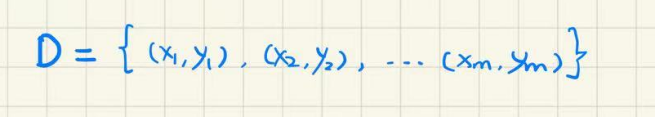 D = { (x₁,y₁), (x₂,y₂), ... (xm,ym)}